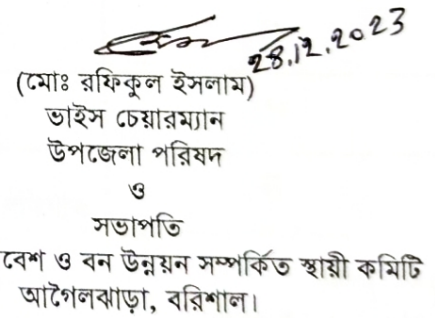 28.12.2023
(মোঃ রফিকুল ইসলাম)
ভাইস চেয়ারম্যান
উপজেলা পরিষদ
ও
সভাপতি
বেশ ও বন উন্নয়ন সম্পর্কিত স্থায়ী কমিটি
আগৈলঝাড়া, বরিশাল।